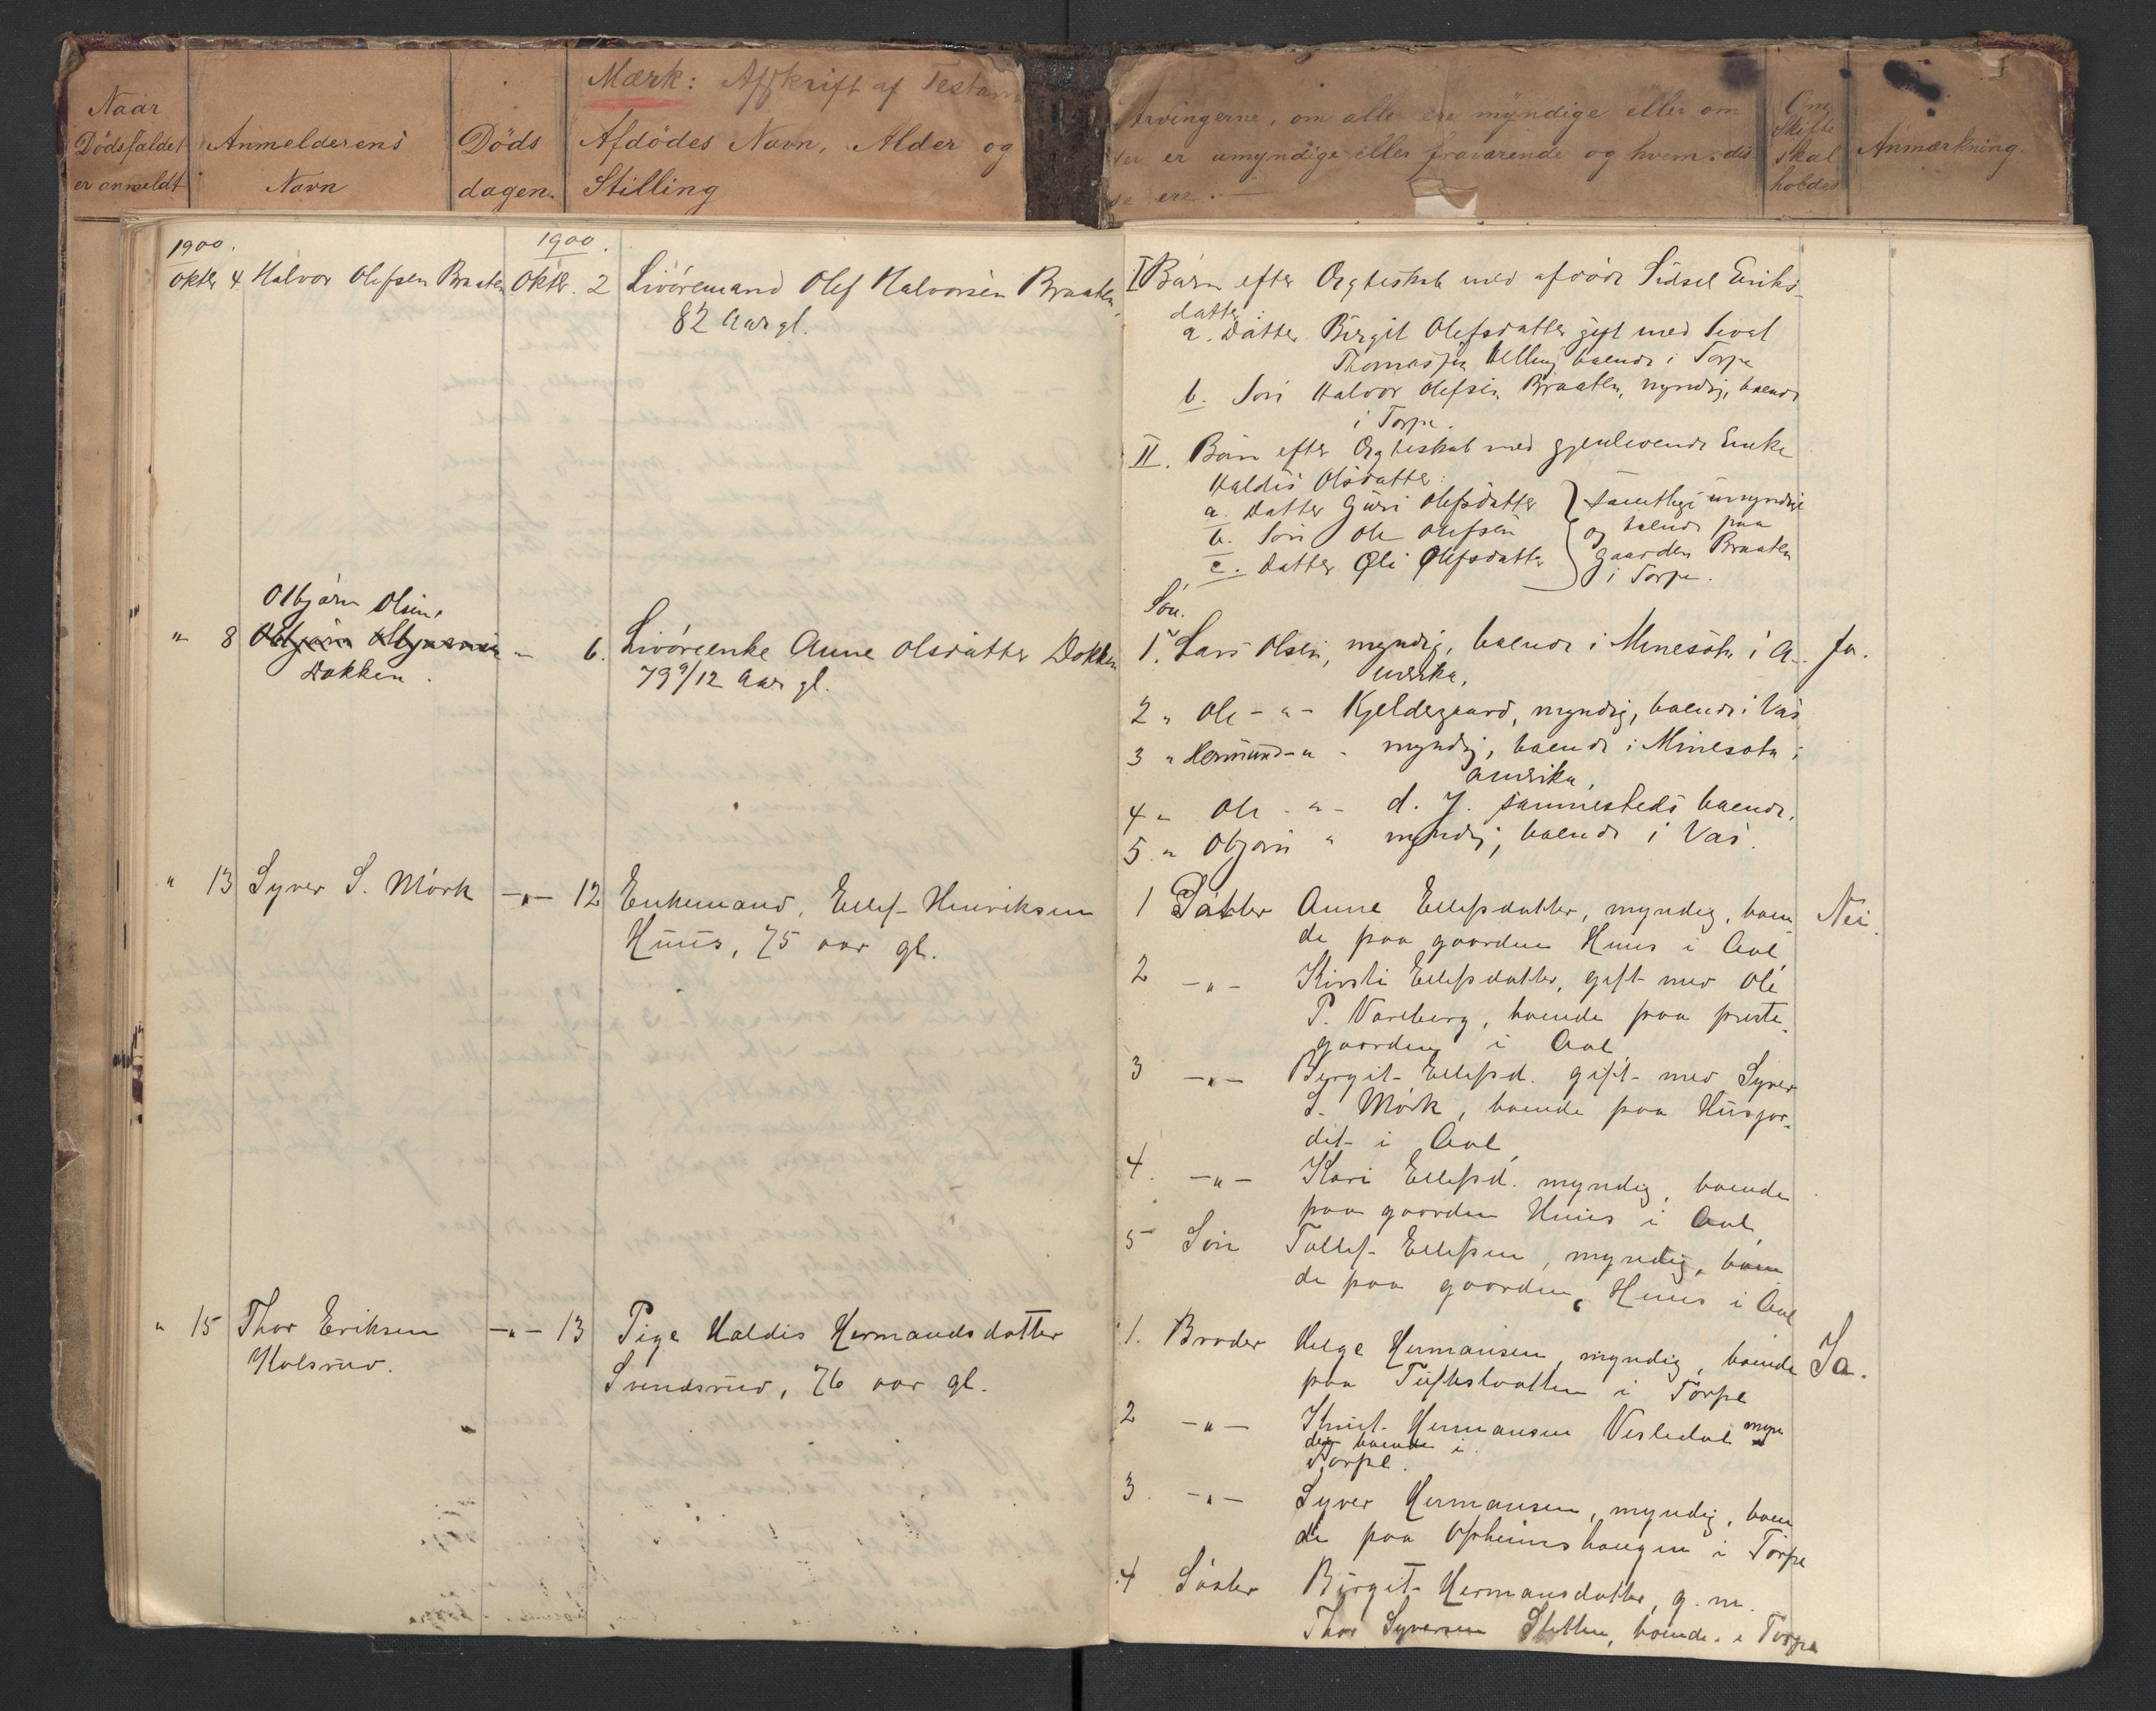 Naar
Dödsfaldet
er anmeldt
Anmelderens
Navn
Döds
dagen.
Mærk: Afskrift af Testam
Afdödes Navn, Alder og
Stilling
Arvingerne, om alle ere myndige eller om
er umyndige eller fraværende og hvem dis-
se ere. —
Om
Skifte
skal
holdes
Anmærkning.
1900.
Oktbr 4. Halvor Olefsen Braaten
1900.
Oktbr. 2
Livöremand Olef Halvorsen Braaten,
82 Aar gl.
I Börn efter Ægteskab med afdöde Sidsel Eriks-
datter:
a. Datter Birgit Olefsdatter gift med Sevat
Thomassen Villing boende i Torpe
b. Sön Halvor Olefsen Braaten, myndig, boende
i Torpe.
II. Börn efter Ægteskab med gjenlevende Enke
Haldis Olsdatter:
a. Datter Guri Olefsdatter
b. Sön Ole Olefsen
c. Datter Oli Olefsdatter
samtlige umyndige
og boende paa
gaarden Braaten
i Torpe.
" 8
Olbjörn Olsen
Dokken.
" 6.
Livöreenke Anne Olsdatter Dokken
79 9/12 Aar gl.
Sön.
1. Lars Olsen, myndig, boende i Minesota i A-
merika.
Ja.
2 " Ole - " - Kjeldegaard, myndig, boende i Vas
3 " Hermund - " - myndig, boende i Minesota i
Amerika,
4 " Ole - " - d. y. sammesteds boende.
5. " Olbjörn " myndig, boende i Vas.
" 13 Syver S. Mörk
—"— 12
Enkemand, Ellef Henriksen
Huus, 75 aar gl.
1 Datter Anne Ellefsdatter, myndig, boen
de paa gaarden Huus i Aal
Nei.
2 —"— Kirsti Ellefsdatter, gift med Ole
P. Vareberg, boende paa preste-
gaarden i Aal
3 —"— Birgit Ellefsd. gift med Syver
S. Mörk, boende paa Husjor-
det i Aal
4. —"— Kari Ellefsd. myndig, boende
paa gaarden Huus i Aal
5 Sön Tollef Ellefsen, myndig, boen
de paa gaarden Huus i Aal
" 15 Thor Eriksen
Holsrud.
—"— 13
Pige Haldis Hermandsdatter
Svendsrud, 76 aar gl.
1. Broder Helge Hermansen, myndig, boende
paa Tuftebraatten i Torpe
Ja.
2 —"— Knut Hermansen Vesledal myn
dig boende i
Torpe.
3. —"— Syver Hermansen, myndig, boen
de paa Opheimshaugen i Torpe
4 Söster Birgit Hermansdatter, g. m.
Thor Syversen Sletten, boende i Torpe